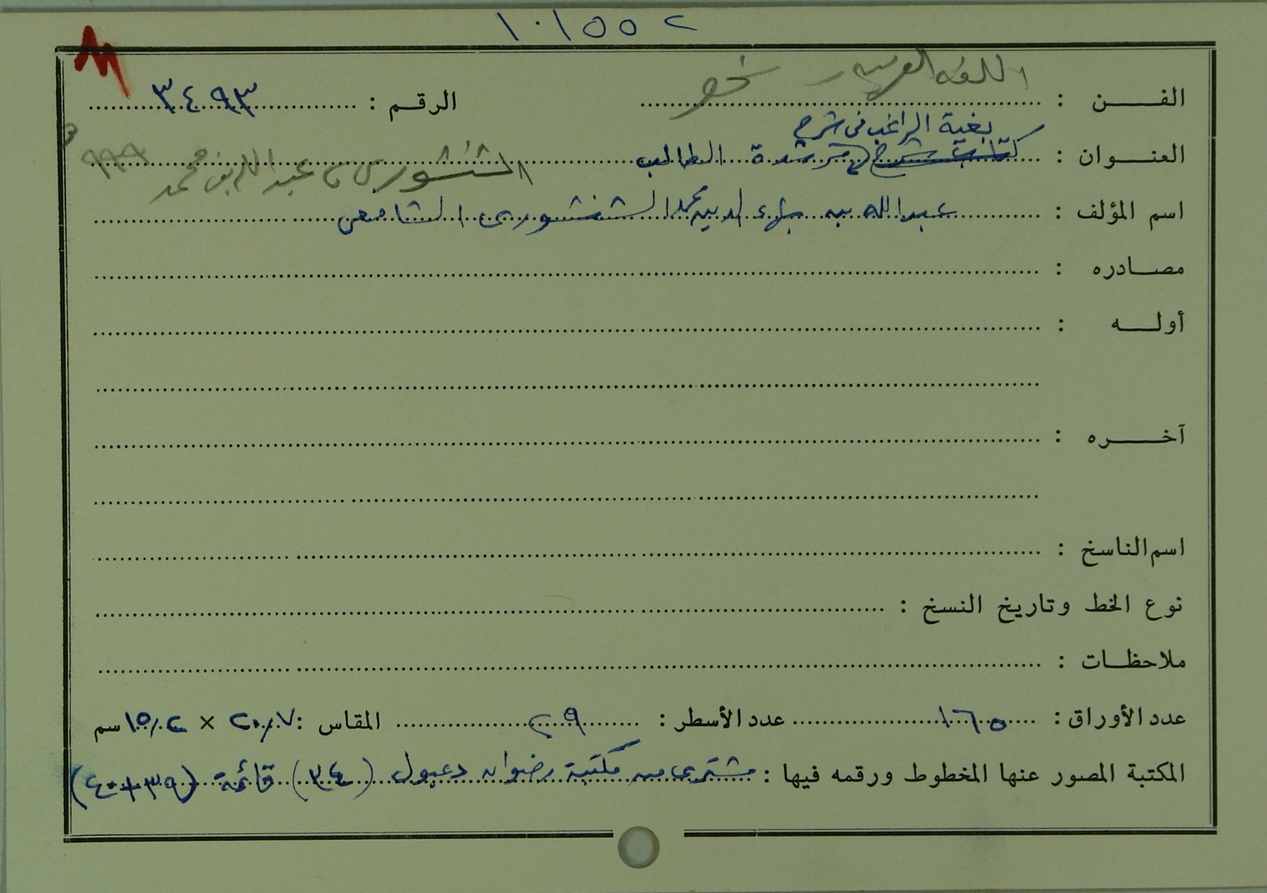 ١٠١٥٥٢
الفن : اللغة العربية - نحو الرقم : ٣٤٩٣
بغية الراغب في شرح
العنوان : كتاب شرح مرشدة الطالب الشنشوري، عبد الله بن محمد ٩٩٩
اسم المؤلف : عبد الله بن بهاء الدين محمد الشنشوري الشافعي
مصادره :
أوله :
آخره :
اسم الناسخ :
نوع الخط وتاريخ النسخ :
ملاحظات :
عدد الأوراق : ١٦٥ عدد الأسطر : ٢٩ المقاس : ٢٠,٧ × ١٥,٢ سم
المكتبة المصور عنها المخطوط ورقمه فيها : مشترى من مكتبة رضوان دعبول (٣٤) قائمة (٣٩+٤٠)